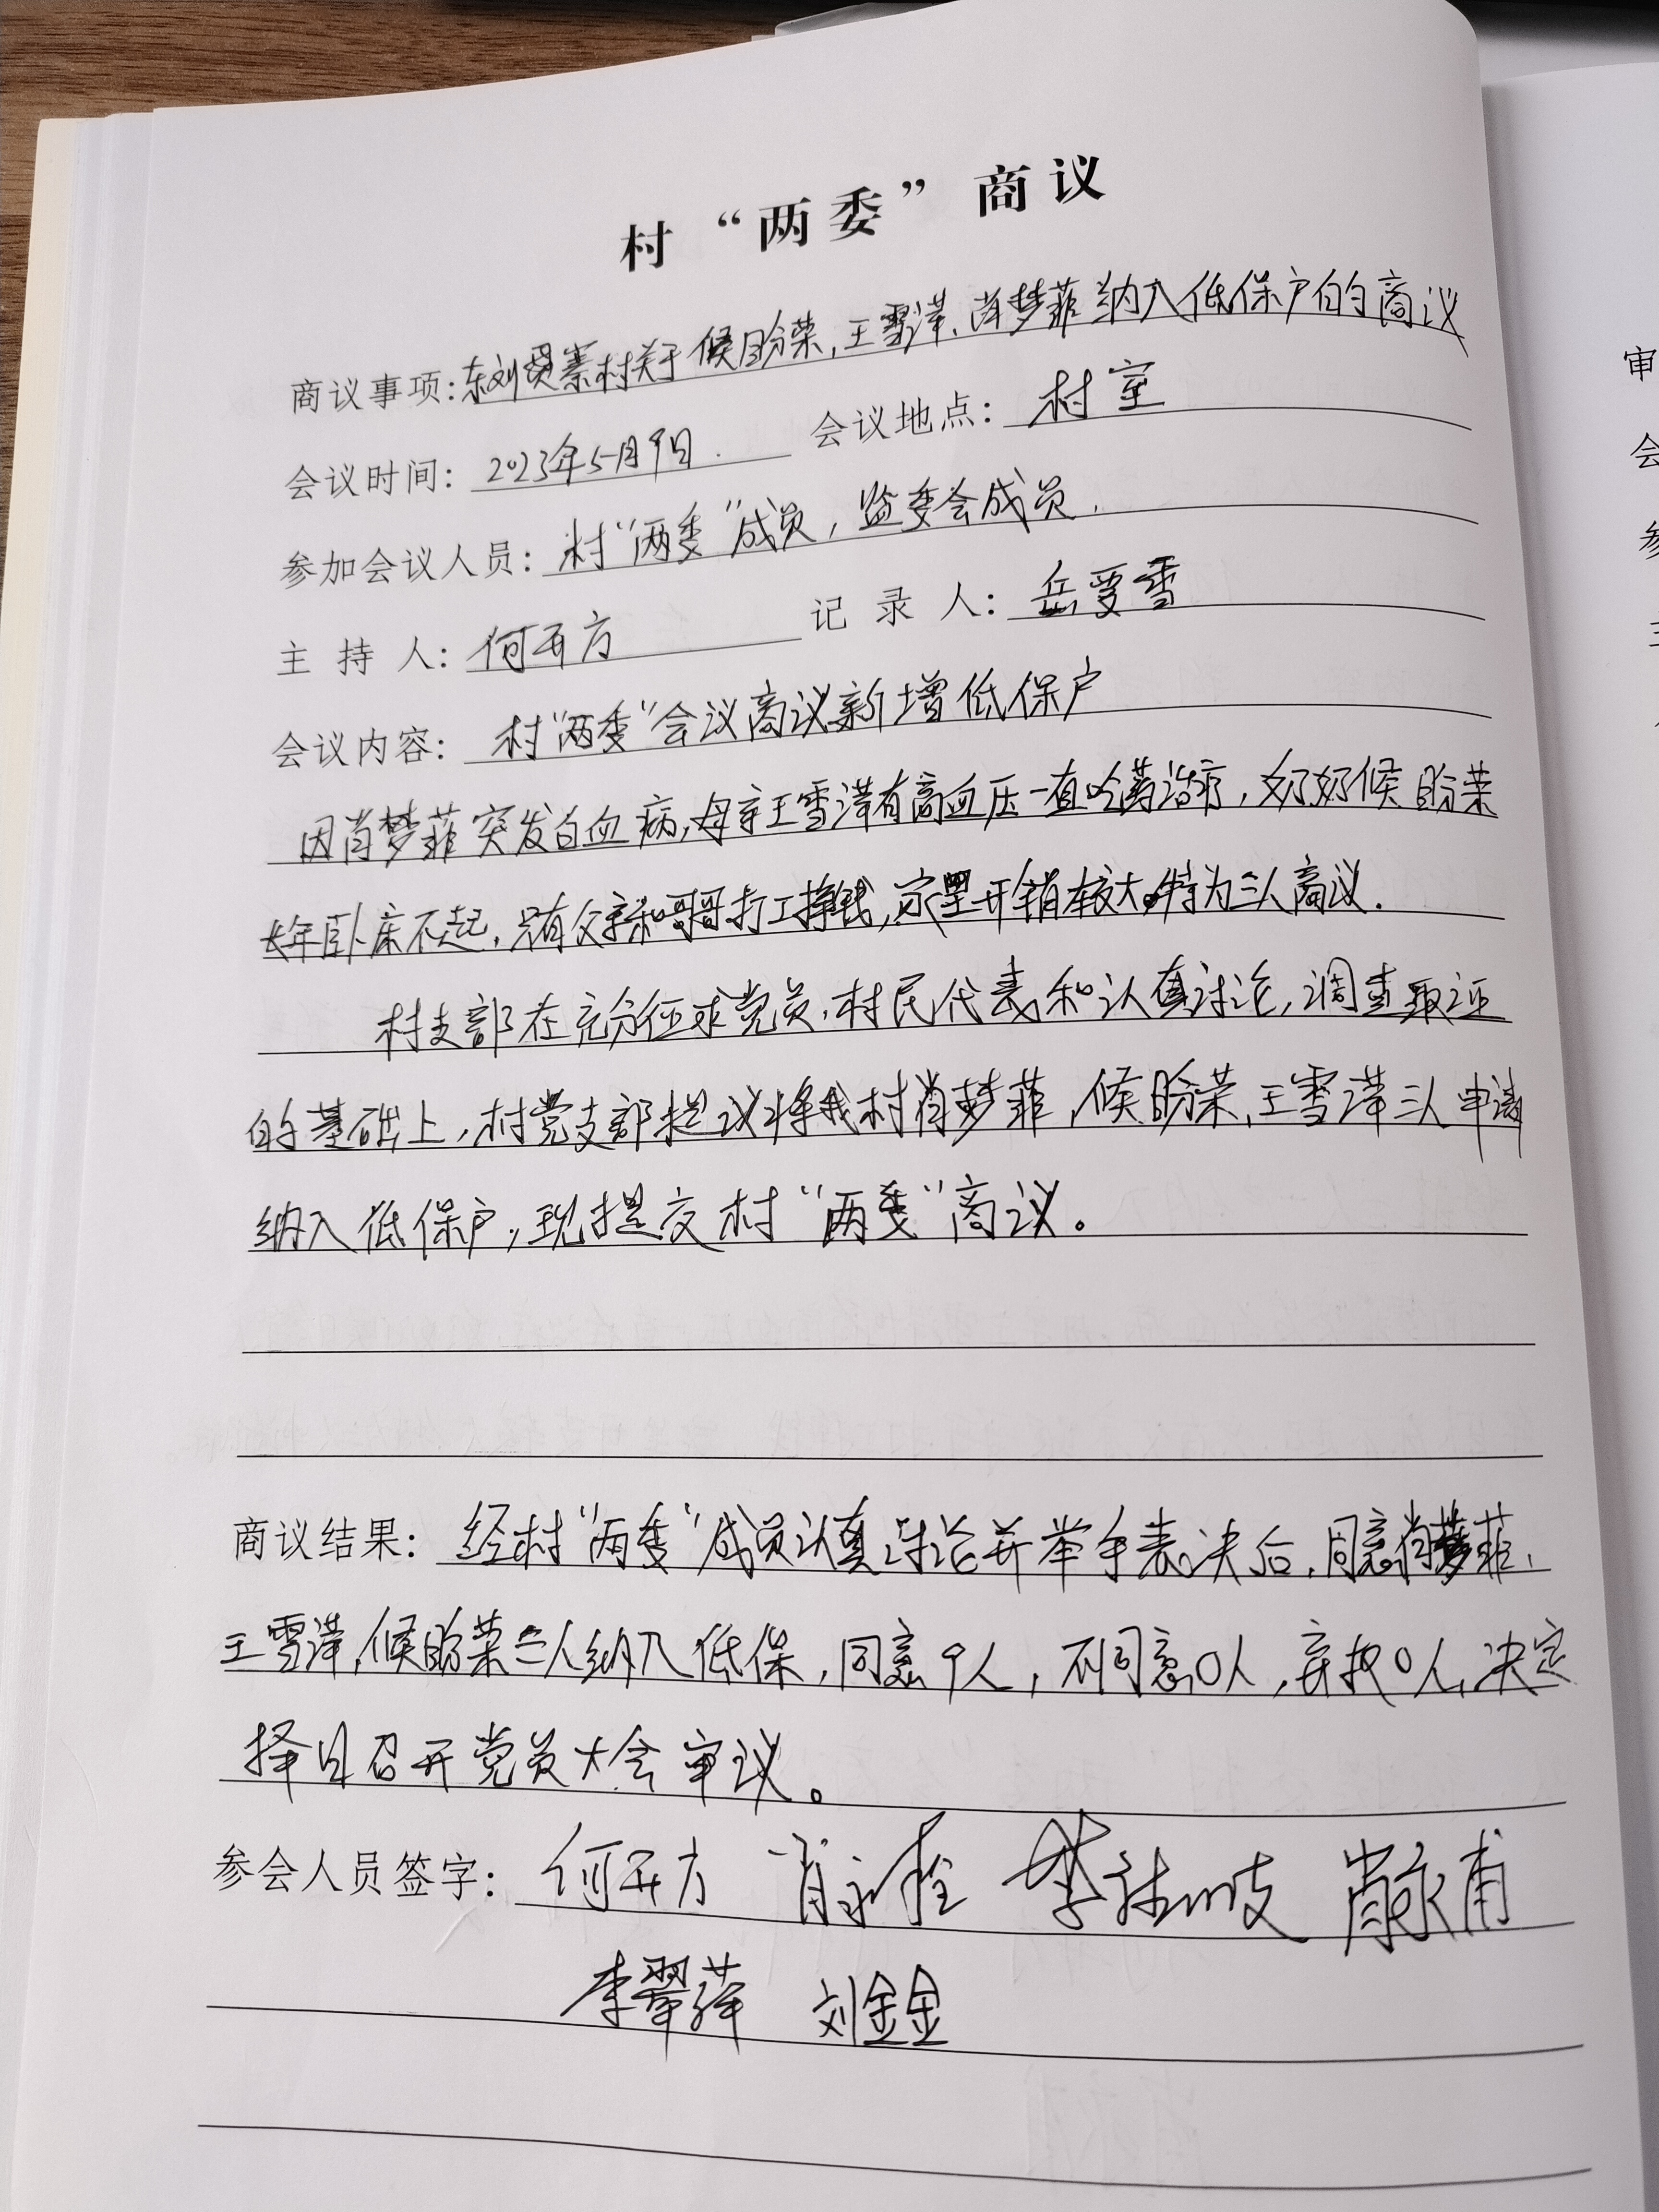 村“两委”商议
商议事项:东刘贤寨村关于候盼荣,王雪泽、肖梦菲纳入低保户的商议
会议时间: 2023年5月9日. 会议地点: 村室
参加会议人员: 村“两委”成员,监委会成员.
主持人: 何开方 记录人: 岳雯雪
会议内容: 村“两委”会议商议新增低保户
因肖梦菲突发白血病,母亲王雪泽有高血压一直吃药治疗,奶奶候盼荣
长年卧床不起,只有父亲和哥哥打工挣钱,家里开销较大。特为三人商议.
村支部在充分征求党员,村民代表和认真讨论,调查取证
的基础上,村党支部提议将我村肖梦菲,候盼荣,王雪泽三人申请
纳入低保户,现提交村“两委”商议。
商议结果: 经村“两委”成员认真讨论并举手表决后,同意肖梦菲,
王雪泽,候盼荣三人纳入低保,同意9人,不同意0人,弃权0人,决定
择日召开党员大会审议。
参会人员签字: 何开方 肖永 李 肖永甫
李翠萍 刘金金
审
会
参
主